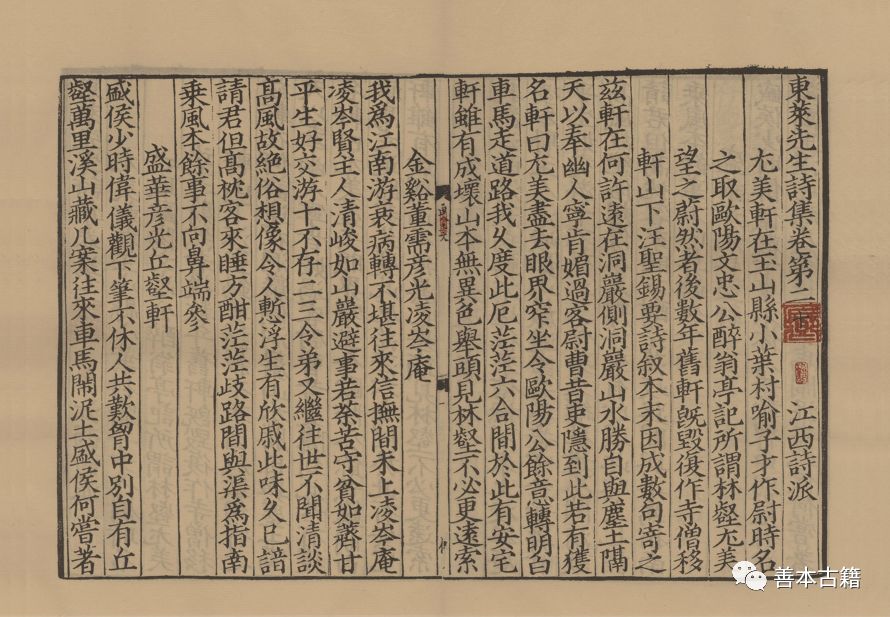 東萊先生詩集卷第二十 江西詩派
尤美軒在玉山縣小葉村喻子才作尉時名
之取歐陽文忠公醉翁亭記所謂林壑尤美
望之蔚然者後數年舊軒旣毀復作寺僧移
軒山下汪聖錫要詩叙本末因成數句寄之
兹軒在何許遠在洞巖側洞巖山水勝自與塵土隔
天以奉幽人寧肯媚過客尉曹昔吏隱到此若有獲
名軒曰尤美盡去眼界窄坐令歐陽公餘意轉明白
車馬走道路我久度此厄茫茫六合間於此有安宅
軒雖有成壞山本無異色舉頭見林壑不必更遠索
金谿董需彦光凌岑庵
我爲江南游衰病轉不堪往來信撫間未上凌岑庵
凌岑賢主人清峻如山巖避事若荼苦守貧如薺甘
平生好交游十不存二三令弟又繼往世不聞清談
髙風故絶俗想像令人慙浮生有欣戚此味久已諳
請君但髙枕客來睡方酣茫茫歧路間與渠爲指南
乘風本餘事不向鼻端參
盛華彦光丘壑軒
盛侯少時偉儀觀下筆不休人共歎胷中別自有丘
壑萬里溪山藏几案往來車馬鬧泥土盛侯何嘗著
善本古籍